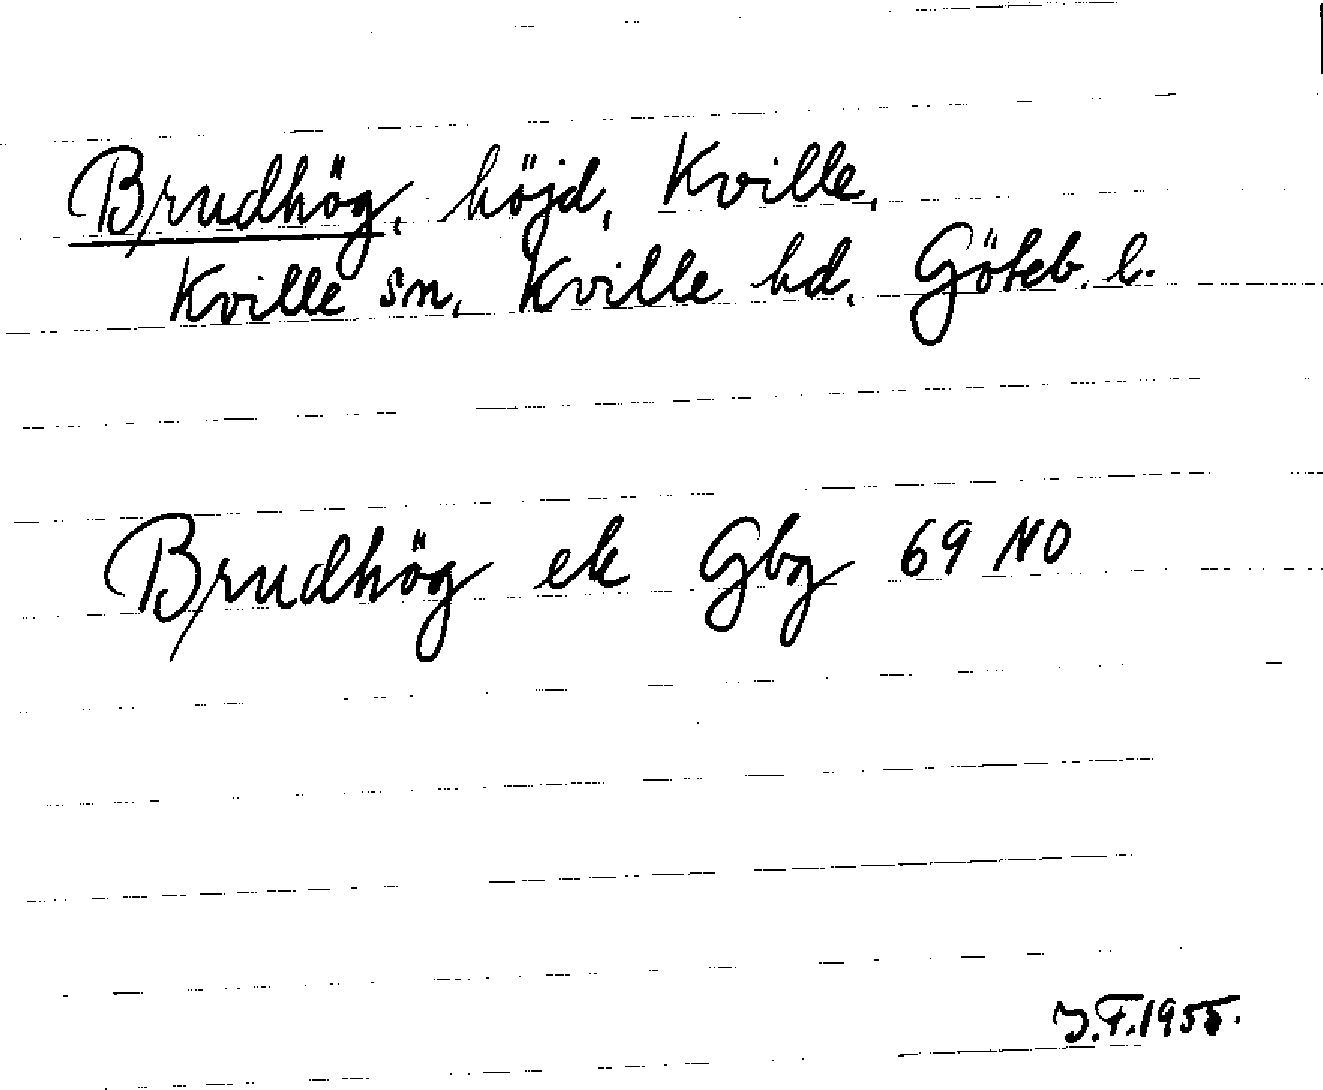 Brudhög, höjd, Kville,
Kville sn, Kville hd, Göteb. l.
Brudhög ek Gbg 69 NO
J.F.1955.